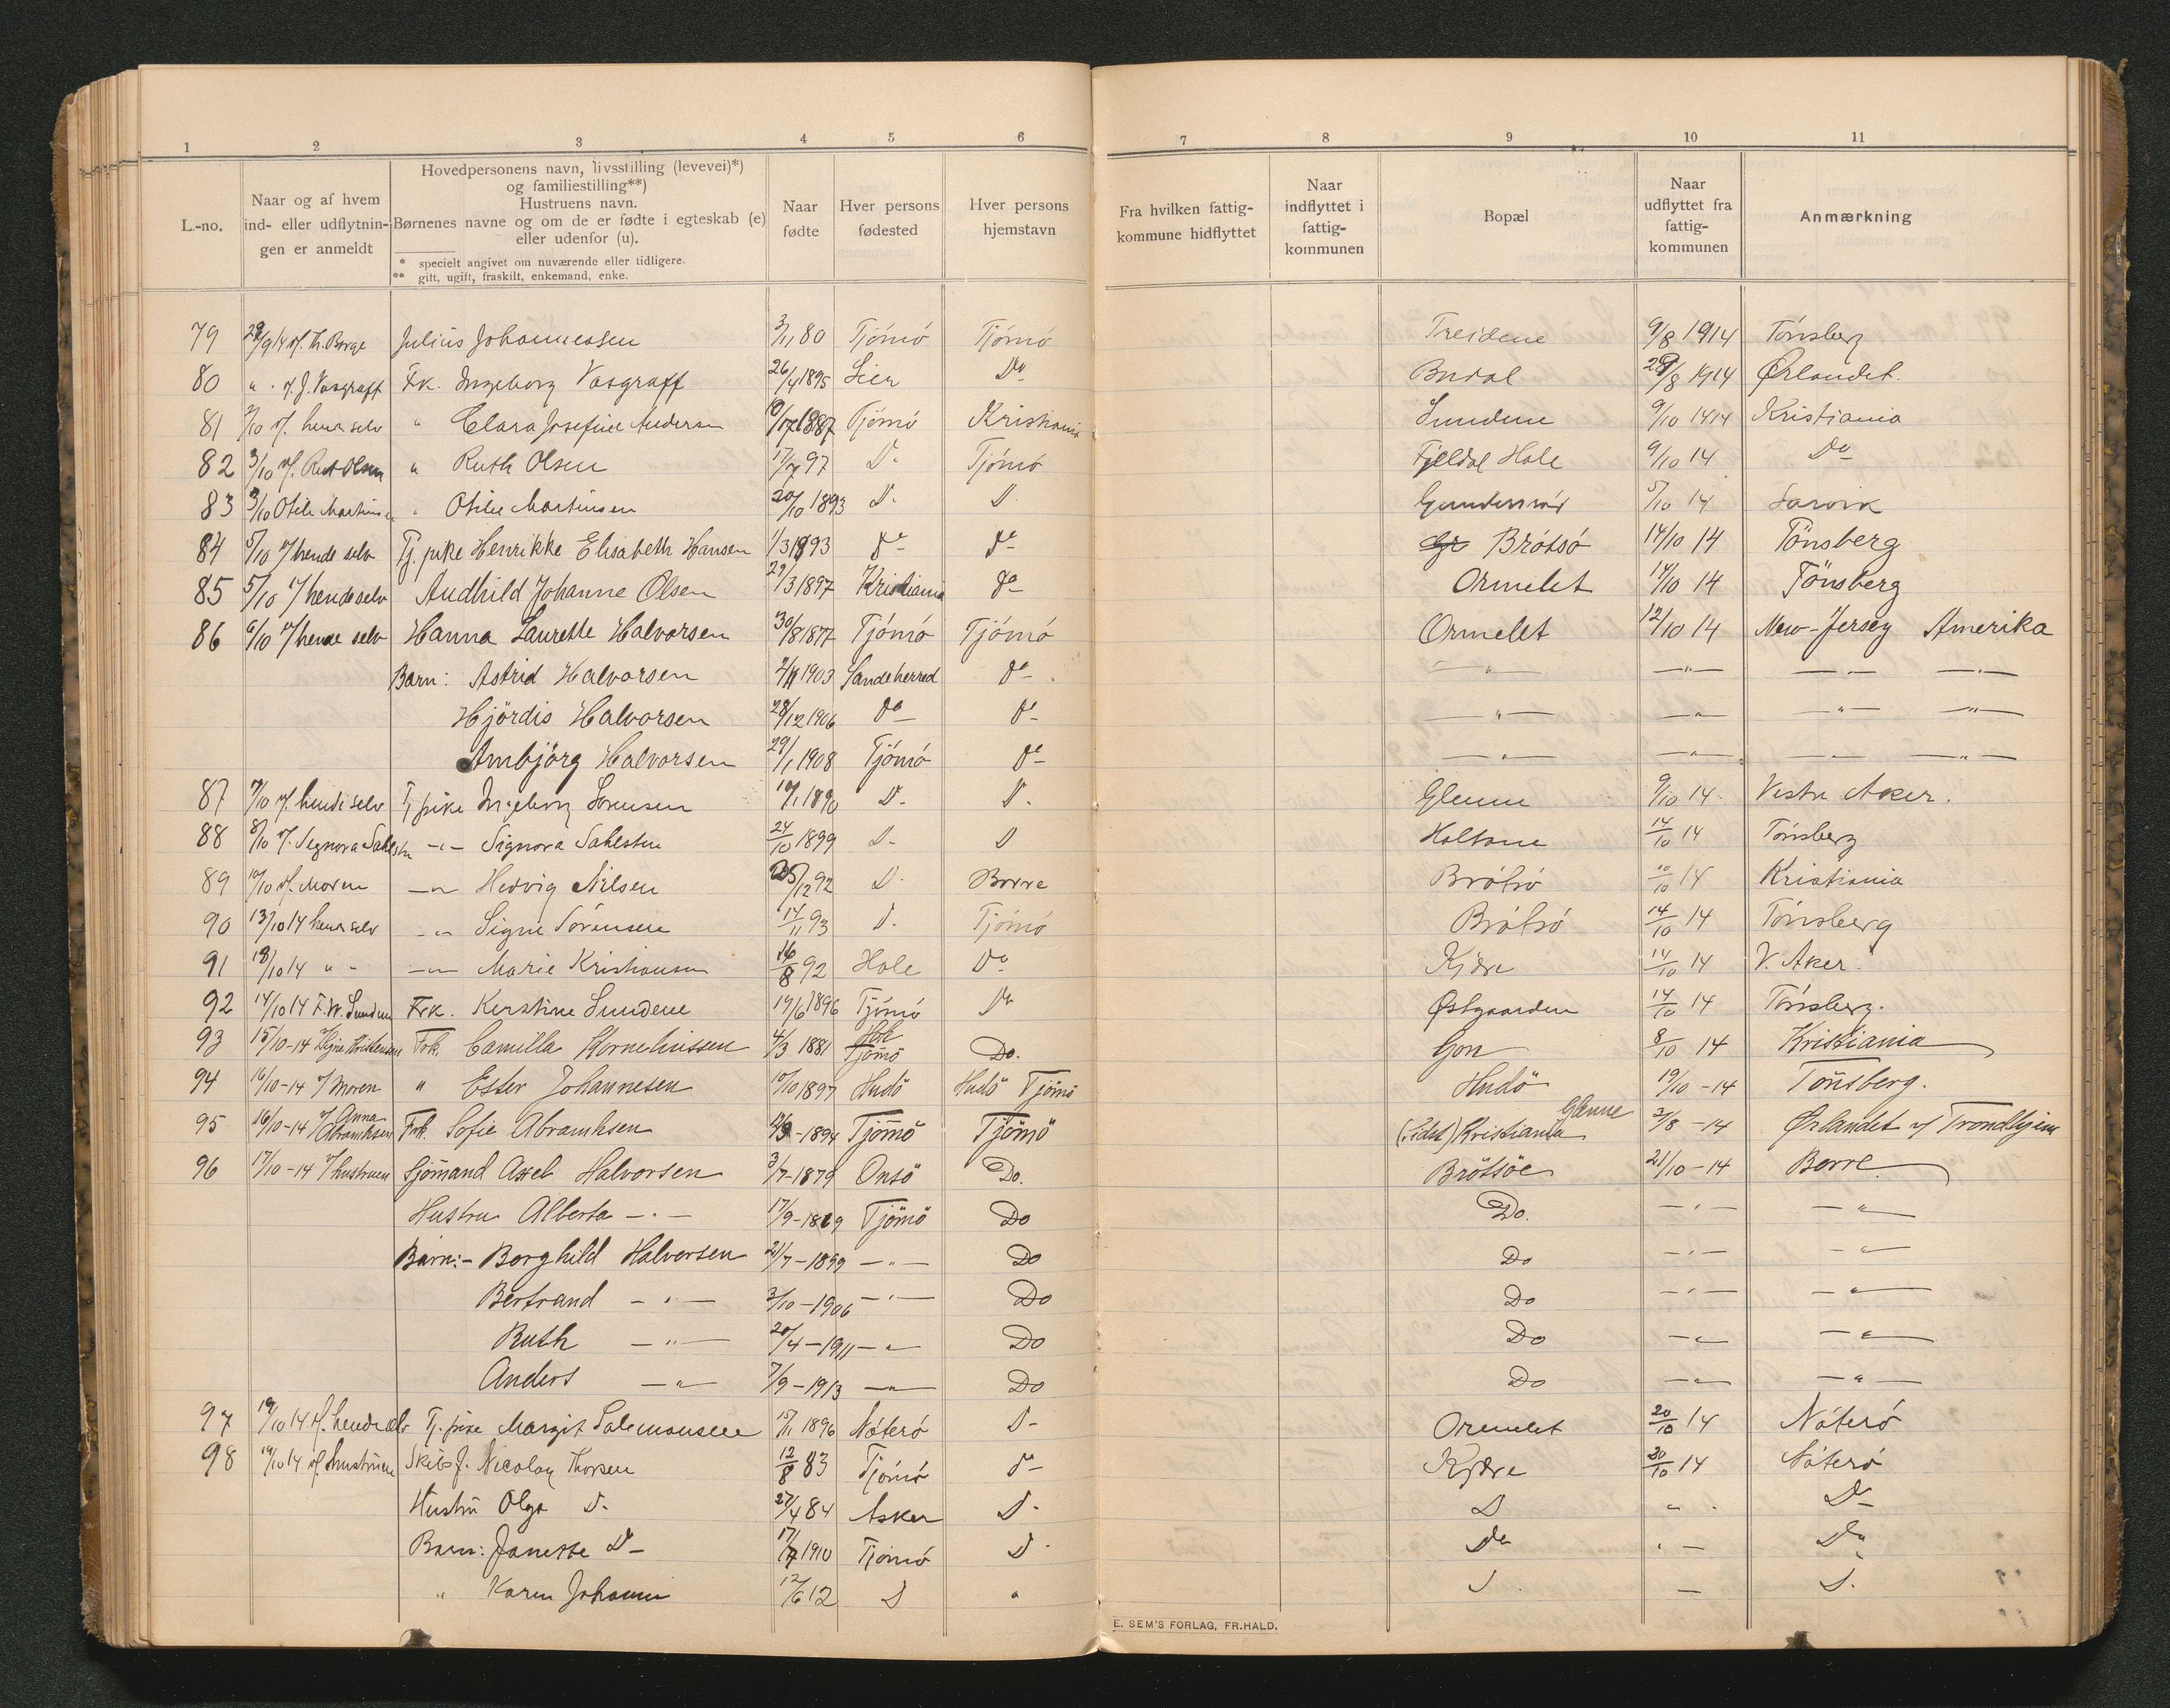 1 2 3 4 5 6 7 8 9 10 11
L.-no.
Naar og af hvem ind- eller udflytnin-gen er anmeldt
Hovedpersonens navn, livsstilling (levevei)*)
og familiestilling**)
Hustruens navn.
Børnenes navne og om de er fødte i egteskab (e)
eller udenfor (u).
* specielt angivet om nuværende eller tidligere.
** gift, ugift, fraskilt, enkemand, enke.
Naar fødte
Hver persons fødested
Hver persons hjemstavn
Fra hvilken fattig-kommune hidflyttet
Naar indflyttet i fattig-kommunen
Bopæl
Naar udflyttet fra fattig-kommunen
Anmærkning
79 Julius Johannessen 3/11 80 Tjömö Tjömö Treidene 9/8 1914 Tönsberg
80 " J. Vasgraff Frk. Ingeborg Vasgraff 26/4 1895 Lier Do Budal 28/8 1914 Ørlandet.
81 hende selv " Clara Josefine Andersen 1887 Tjömö Kristiania Sundene 9/10 1914 Kristiania
82 3/10 Rut Olsen " Ruth Olsen 17/7 97 Do Tjömö Fjeldal Hole 9/10 14 Do
83 3/10 Otilie Martinsen " Otilie Martinsen 20/10 1893 D. D. Gundersröd 5/10 14 Larvik
84 5/10 v/ hende selv Tj. pike Henrikke Elisabeth Hansen 1/3 1893 do do Brötsö 14/10 14 Tönsberg
85 5/10 v/ hende selv Audhild Johanne Olsen 29/3 1897 Kristiania do Ormelet 14/10 14 Tönsberg
86 6/10 v/ hende selv Hanna Laurette Halvorsen 30/8 1877 Tjömö Tjömö Ormelet 12/10 14 New-Jersey Amerika
Barn: Astrid Halvorsen 1903 Sandeherred do — " — — " — — " — — " —
Hjördis Halvorsen 28/12 1906 do do — " — — " — — " — — " —
Arnbjörg Halvorsen 29/1 1908 Tjömö do — " — — " — — " — — " —
87 7/10 v/ hende selv Tj pike Ingeborg Sörensen 10/1 1890 D. D. Glenne 9/10 14 Vestre Aker.
88 8/10 v/ Signora Sahesten — " — Signora Sahesten 24/10 1899 D. D Holtane 14/10 14 Tönsberg
89 10/10 v/ Moren — " — Hedvig Nilsen 25/12 92 D. Borre Brötsö 10/10 14 Kristiania
90 13/10 14 hende selv — " — Signe Sörensen 14/11 93 D. Tjömö Brötsö 14/10 14 Tönsberg
91 13/10 14 " " — " — Marie Kristiansen 16/8 92 Hole Do Kjære 14/10 14 V. Aker.
92 14/10 14 F.W. Sundene Frk. Kerstine Sundene 19/6 1896 Tjömö Do Østgaarden 14/10 14 Tönsberg.
93 15/10-14 Frk. Camilla Korneliussen 4/3 1881 Hole Tjömö Do. Gon 8/10 14 Kristiania
94 16/10-14 v/ moren " Ester Johannesen 10/10 1897 Hudö Hudö Tjömö Hudö 19/10-14 Tönsberg.
95 16/10-14 v/ Anna Abramhsen Frk. Sofie Abramhsen 1894 Tjömö Tjömö (sidst) Kristiania Glenne 3/8-14 Ørlandet v/ Trondhjem
96 17/10-14 v/ hustruen Sjömand Axel Halvorsen 3/7-1879 Onsö Do. Brötsöe 21/10-14 Borre
Hustru Alberta — " — 17/9-1879 Tjömö Do Do. — " — — " —
Barn:- Borghild Halvorsen 21/7-1899 — " — Do Do — " — — " —
Bertrand — " — 3/10-1906 — " — Do Do — " — — " —
Ruth — " — 20/4-1911 — " — Do Do — " — — " —
Anders — " — 7/9-1913 — " — Do Do — " — — " —
97 19/10 14 v/ hende selv Tj. pike Margit Salemonsen 15/1 1896 Nöterö D- Ormelet 20/10 14 Nöterö
98 19/10 14 v/ hustruen Skibsf. Nicolay Thorsen 12/8 83 Tjömö do Kjære 20/10 14 Nöterö
Hustru Olga D. 27/4 84 Asker D. D " Do
Barn: Janette Do 17/7 1910 Tjömö D. Do " — Do
" Karen Johanne 12/6 12 D " D. — D.
E. SEM'S FORLAG, FR.HALD.